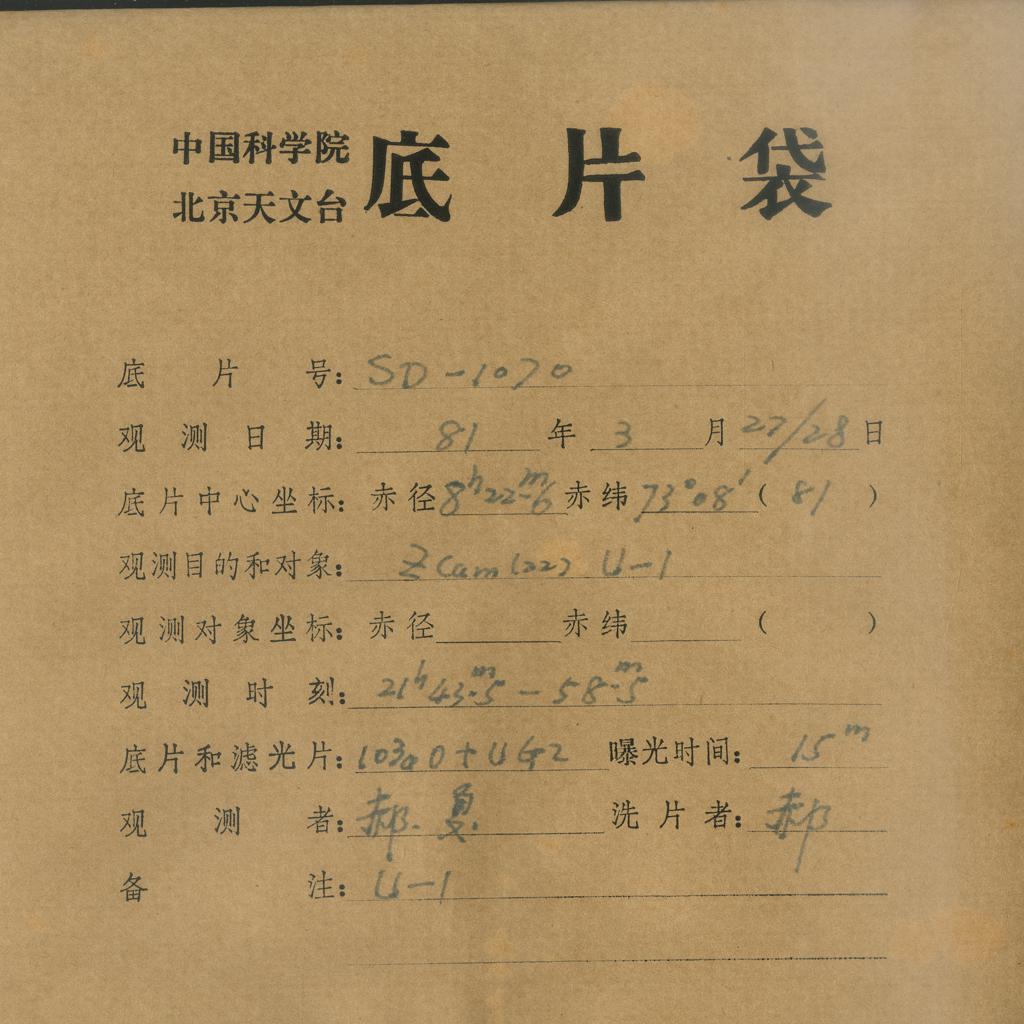 中国科学院
北京天文台
底片袋
底片号: SD-1070
观测日期: 81年3月27/28日
底片中心坐标: 赤径8h22m.6 赤纬73°08′(81)
观测目的和对象: Z Cam (22) U-1
观测对象坐标: 赤径 赤纬 ( )
观测时刻: 21h43m.5-58m.5
底片和滤光片: 103aO+UG2 曝光时间: 15m
观测者: 郝. 夏. 洗片者: 郝
备注: U-1